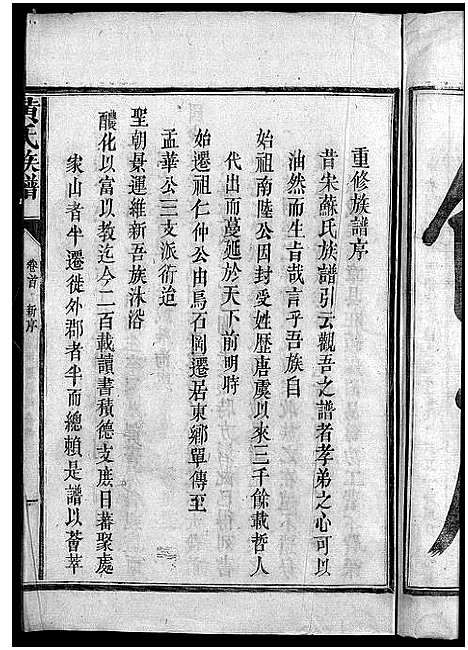 重修族譜序
昔宋蘇氏族譜引云觀吾之譜者孝弟之心可以
油然而生旨哉言乎吾族自
始祖南陸公因封受姓歷唐虞以來三千餘載哲人
代出而蔓延於天下前明時
始遷祖仁仲公由烏石岡遷居東鄉單傳至
孟華公三支派衍迨
聖朝景運維新吾族沐浴
醲化以富以教迄今二百載讀書積德支庶日蕃聚處
家山者半遷徙外郡者半而總賴是譜以薈萃
黃氏族譜
卷首
新序